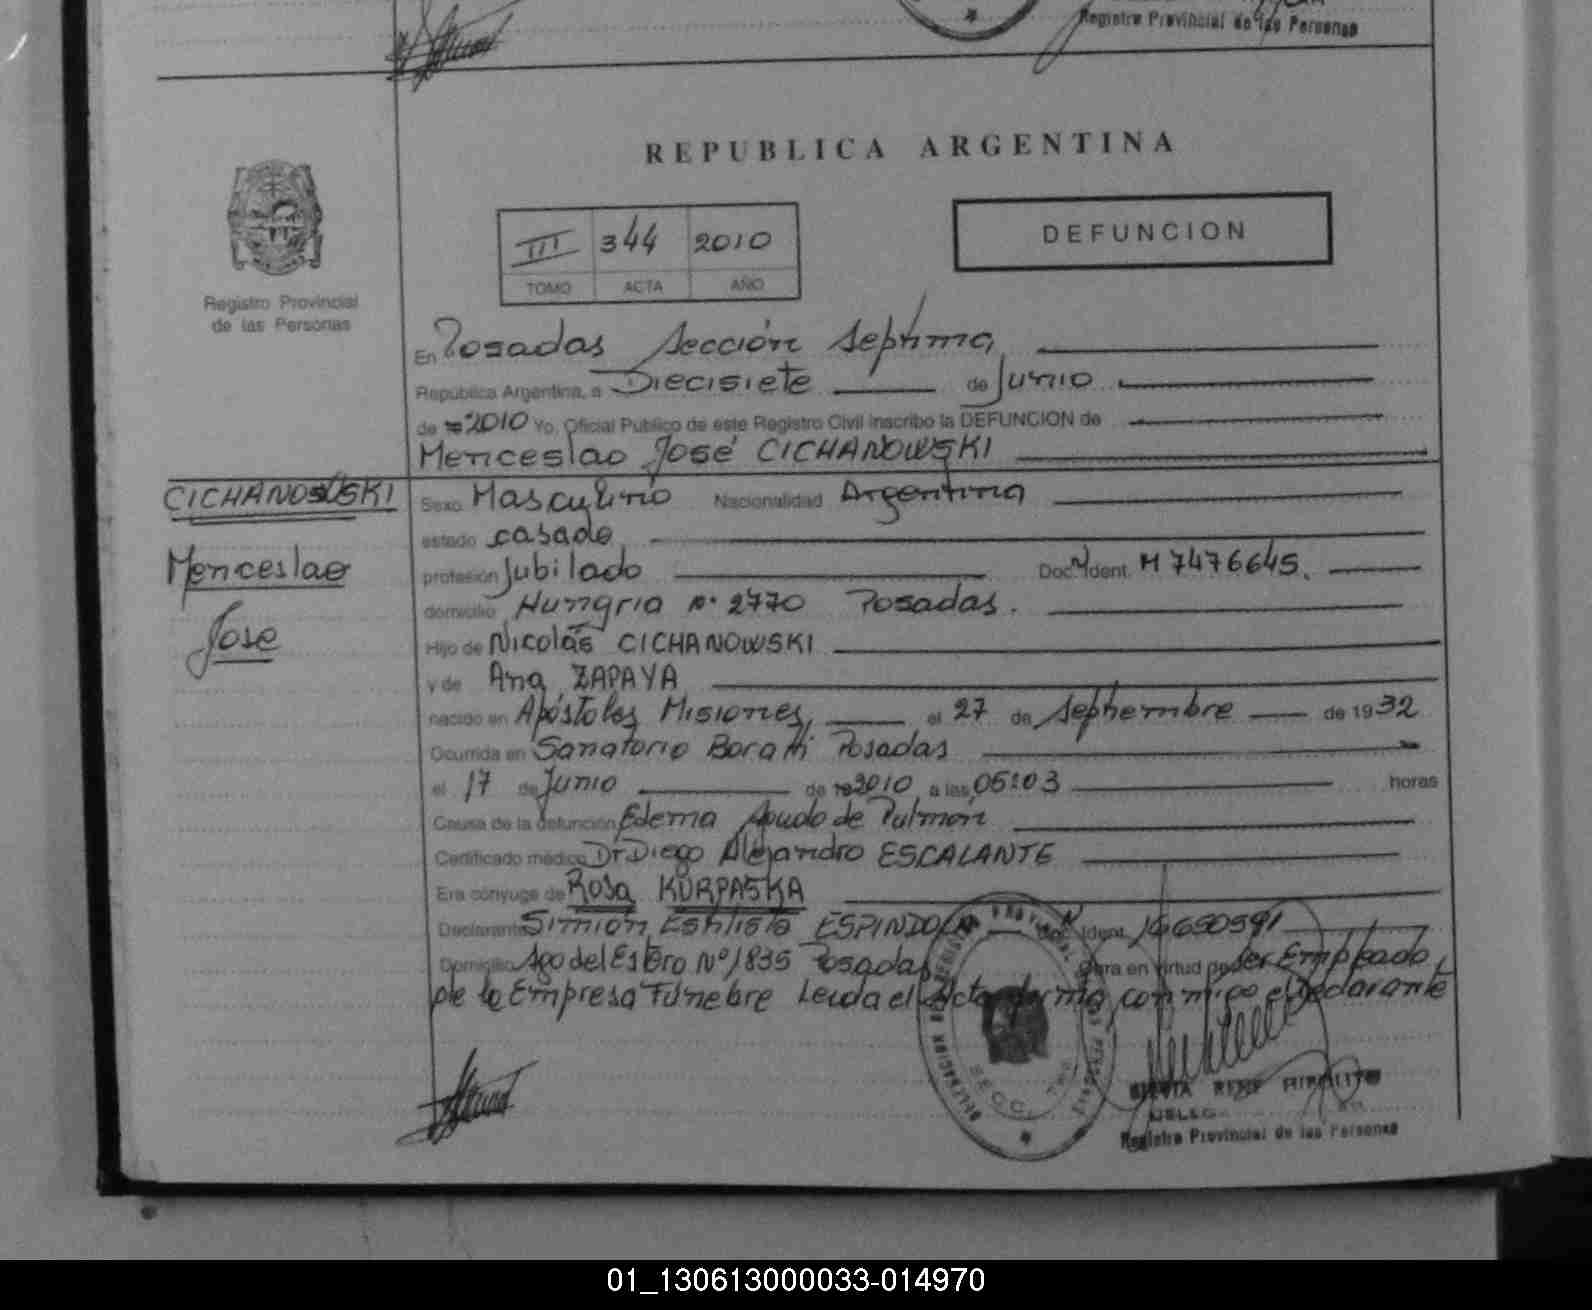 Registro Provincial de las Personas
REPUBLICA ARGENTINA
III 344 2010
TOMO ACTA AÑO
DEFUNCION
Registro Provincial
de las Personas
En Posadas Sección Septima
República Argentina, a Diecisiete de Junio
de 2010 Yo, Oficial Público de este Registro Civil inscribo la DEFUNCION de
Menceslao José CICHANOWSKI
CICHANOWSKI
Menceslao
Jose
Sexo Masculino Nacionalidad Argentina
estado casado
profesión Jubilado Doc. Ident. M 7476645.
domicilio Hungria n° 2770 Posadas.
Hijo de Nicolás CICHANOWSKI
y de Ana ZAPAYA
nacido en Apóstoles Misiones, el 27 de Septiembre de 1932
Ocurrida en Sanatorio Boratti Posadas
el 17 de Junio de 2010 a las 05:03 horas
Causa de la defunción Edema Agudo de Pulmón
Certificado médico Dr Diego Alejandro ESCALANTE
Era cónyuge de Rosa KURPASKA
Declarante Simión Estilisto ESPINDOLA Doc. Ident. 16650591
Domicilio Sgo del Estero N° 1835 Posadas Obra en virtud de ser Empleado
de la Empresa Fúnebre Leida el Acta firma conmigo el Declarante
DELEGACION
SECC.
HIPOLITO
Registro Provincial de las Personas
01_130613000033-014970